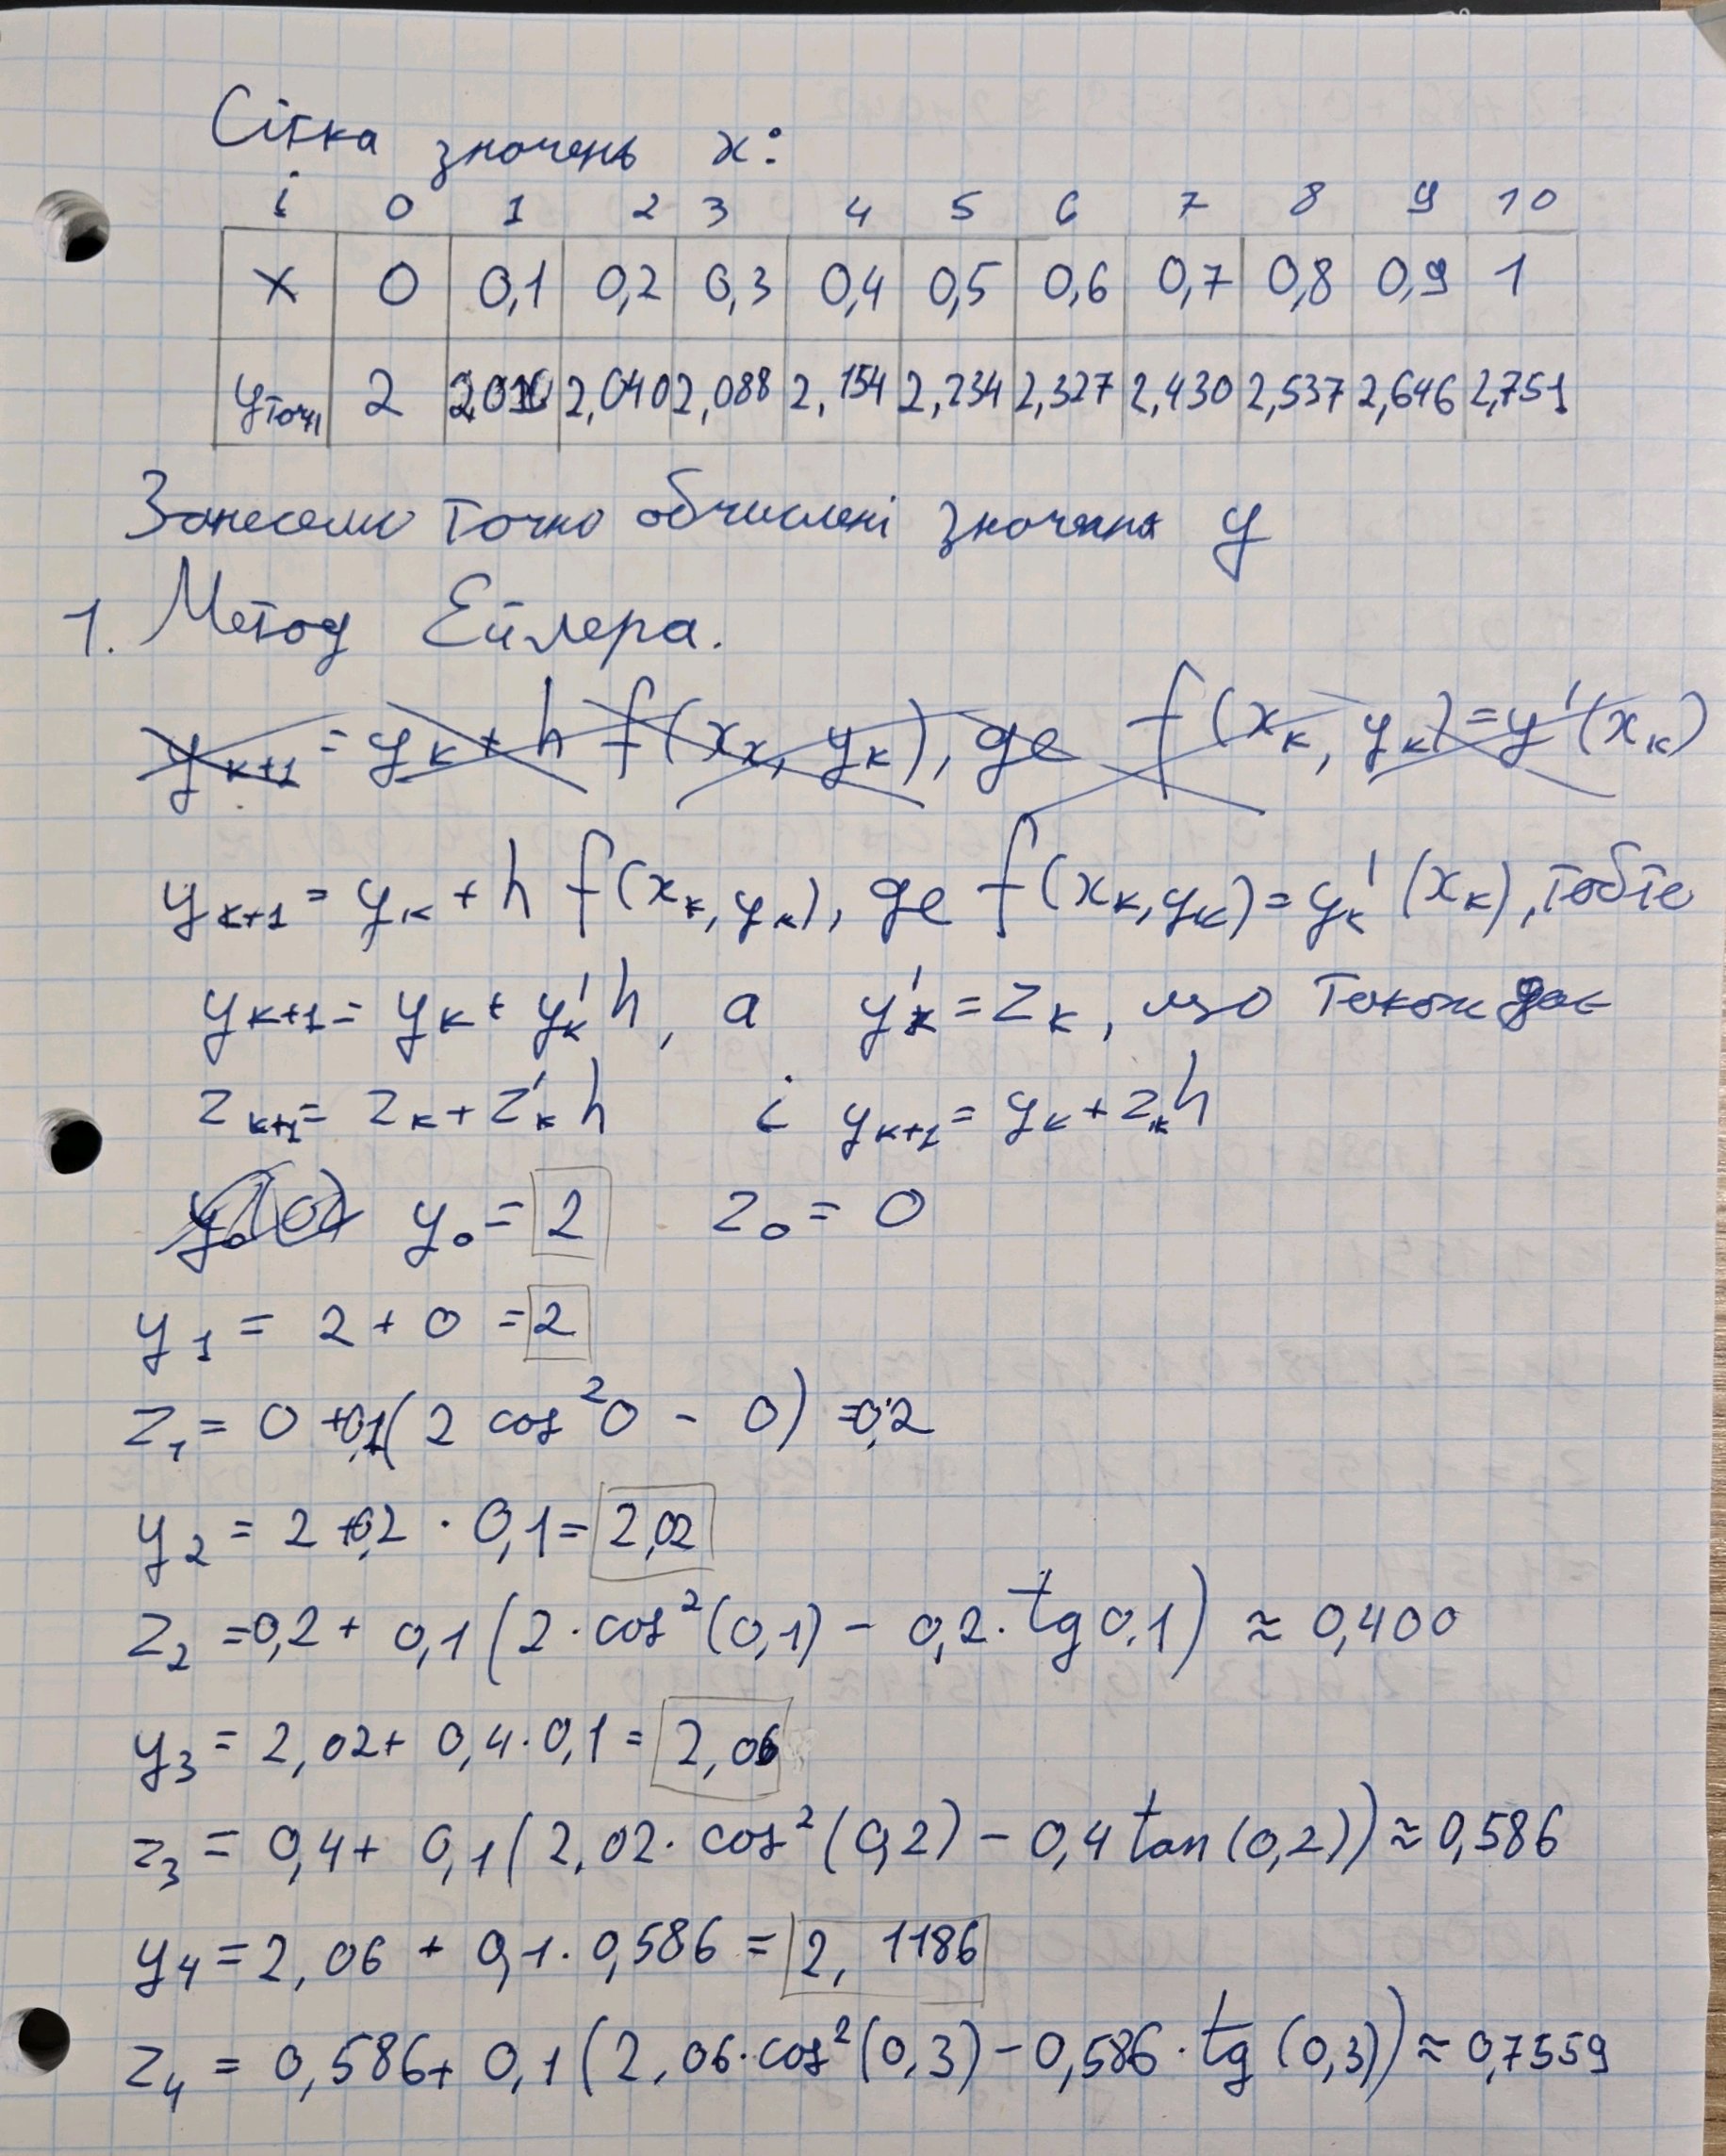 Сітка значень x:
i 0 1 2 3 4 5 6 7 8 9 10
x 0 0,1 0,2 0,3 0,4 0,5 0,6 0,7 0,8 0,9 1
yточн 2 2,010 2,040 2,088 2,154 2,234 2,327 2,430 2,537 2,646 2,751
Занесемо точно обчислені значення y
1. Метод Ейлера.
y_{k+1} = y_k + h f(x_k, y_k), де f(x_k, y_k) = y'(x_k)
y_{k+1} = y_k + h f(x_k, y_k), де f(x_k, y_k) = y'_k (x_k), тобто
y_{k+1} = y_k + y'_k h, а y'_k = z_k, що також дає
z_{k+1} = z_k + z'_k h і y_{k+1} = y_k + z_k h
y_0 = 2 z_0 = 0
y_1 = 2 + 0 = 2
z_1 = 0 + 0,1(2 cos² 0 - 0) = 0,2
y_2 = 2 + 0,2 · 0,1 = 2,02
z_2 = 0,2 + 0,1 (2 · cos² (0,1) - 0,2 · tg 0,1) ≈ 0,400
y_3 = 2,02 + 0,4 · 0,1 = 2,06
z_3 = 0,4 + 0,1 (2,02 · cos² (0,2) - 0,4 tan (0,2)) ≈ 0,586
y_4 = 2,06 + 0,1 · 0,586 = 2,1186
z_4 = 0,586 + 0,1 (2,06 · cos² (0,3) - 0,586 · tg (0,3)) ≈ 0,7559